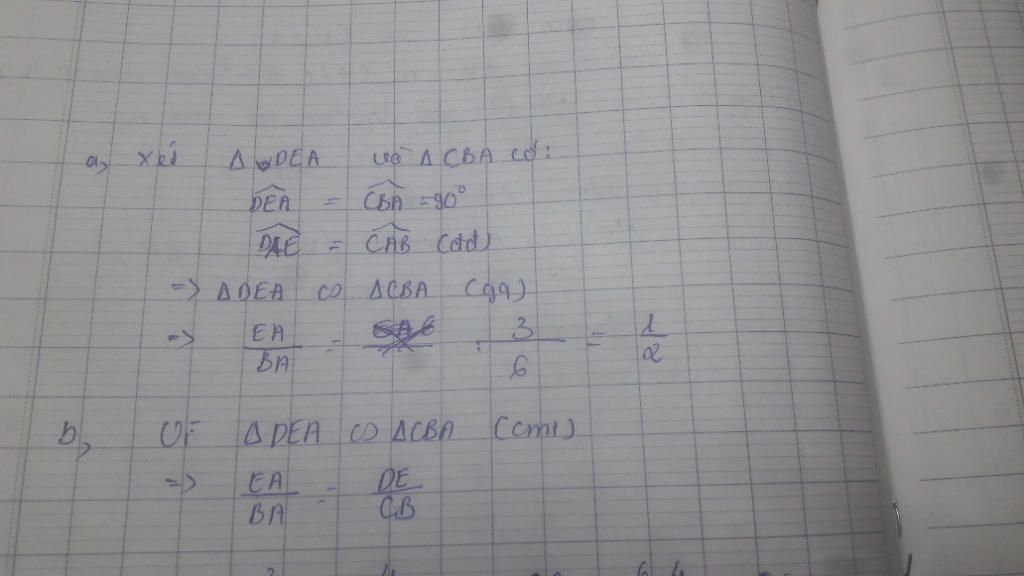 a, xét Δ DEA và Δ CBA có:
DEA = CBA = 90°
DAE = CAB (đđ)
=> ΔDEA ∽ ΔCBA (gg)
=> EA/BA = 3/6 = 1/2
b, Vì ΔDEA ∽ ΔCBA (cmt)
=> EA/BA = DE/CB